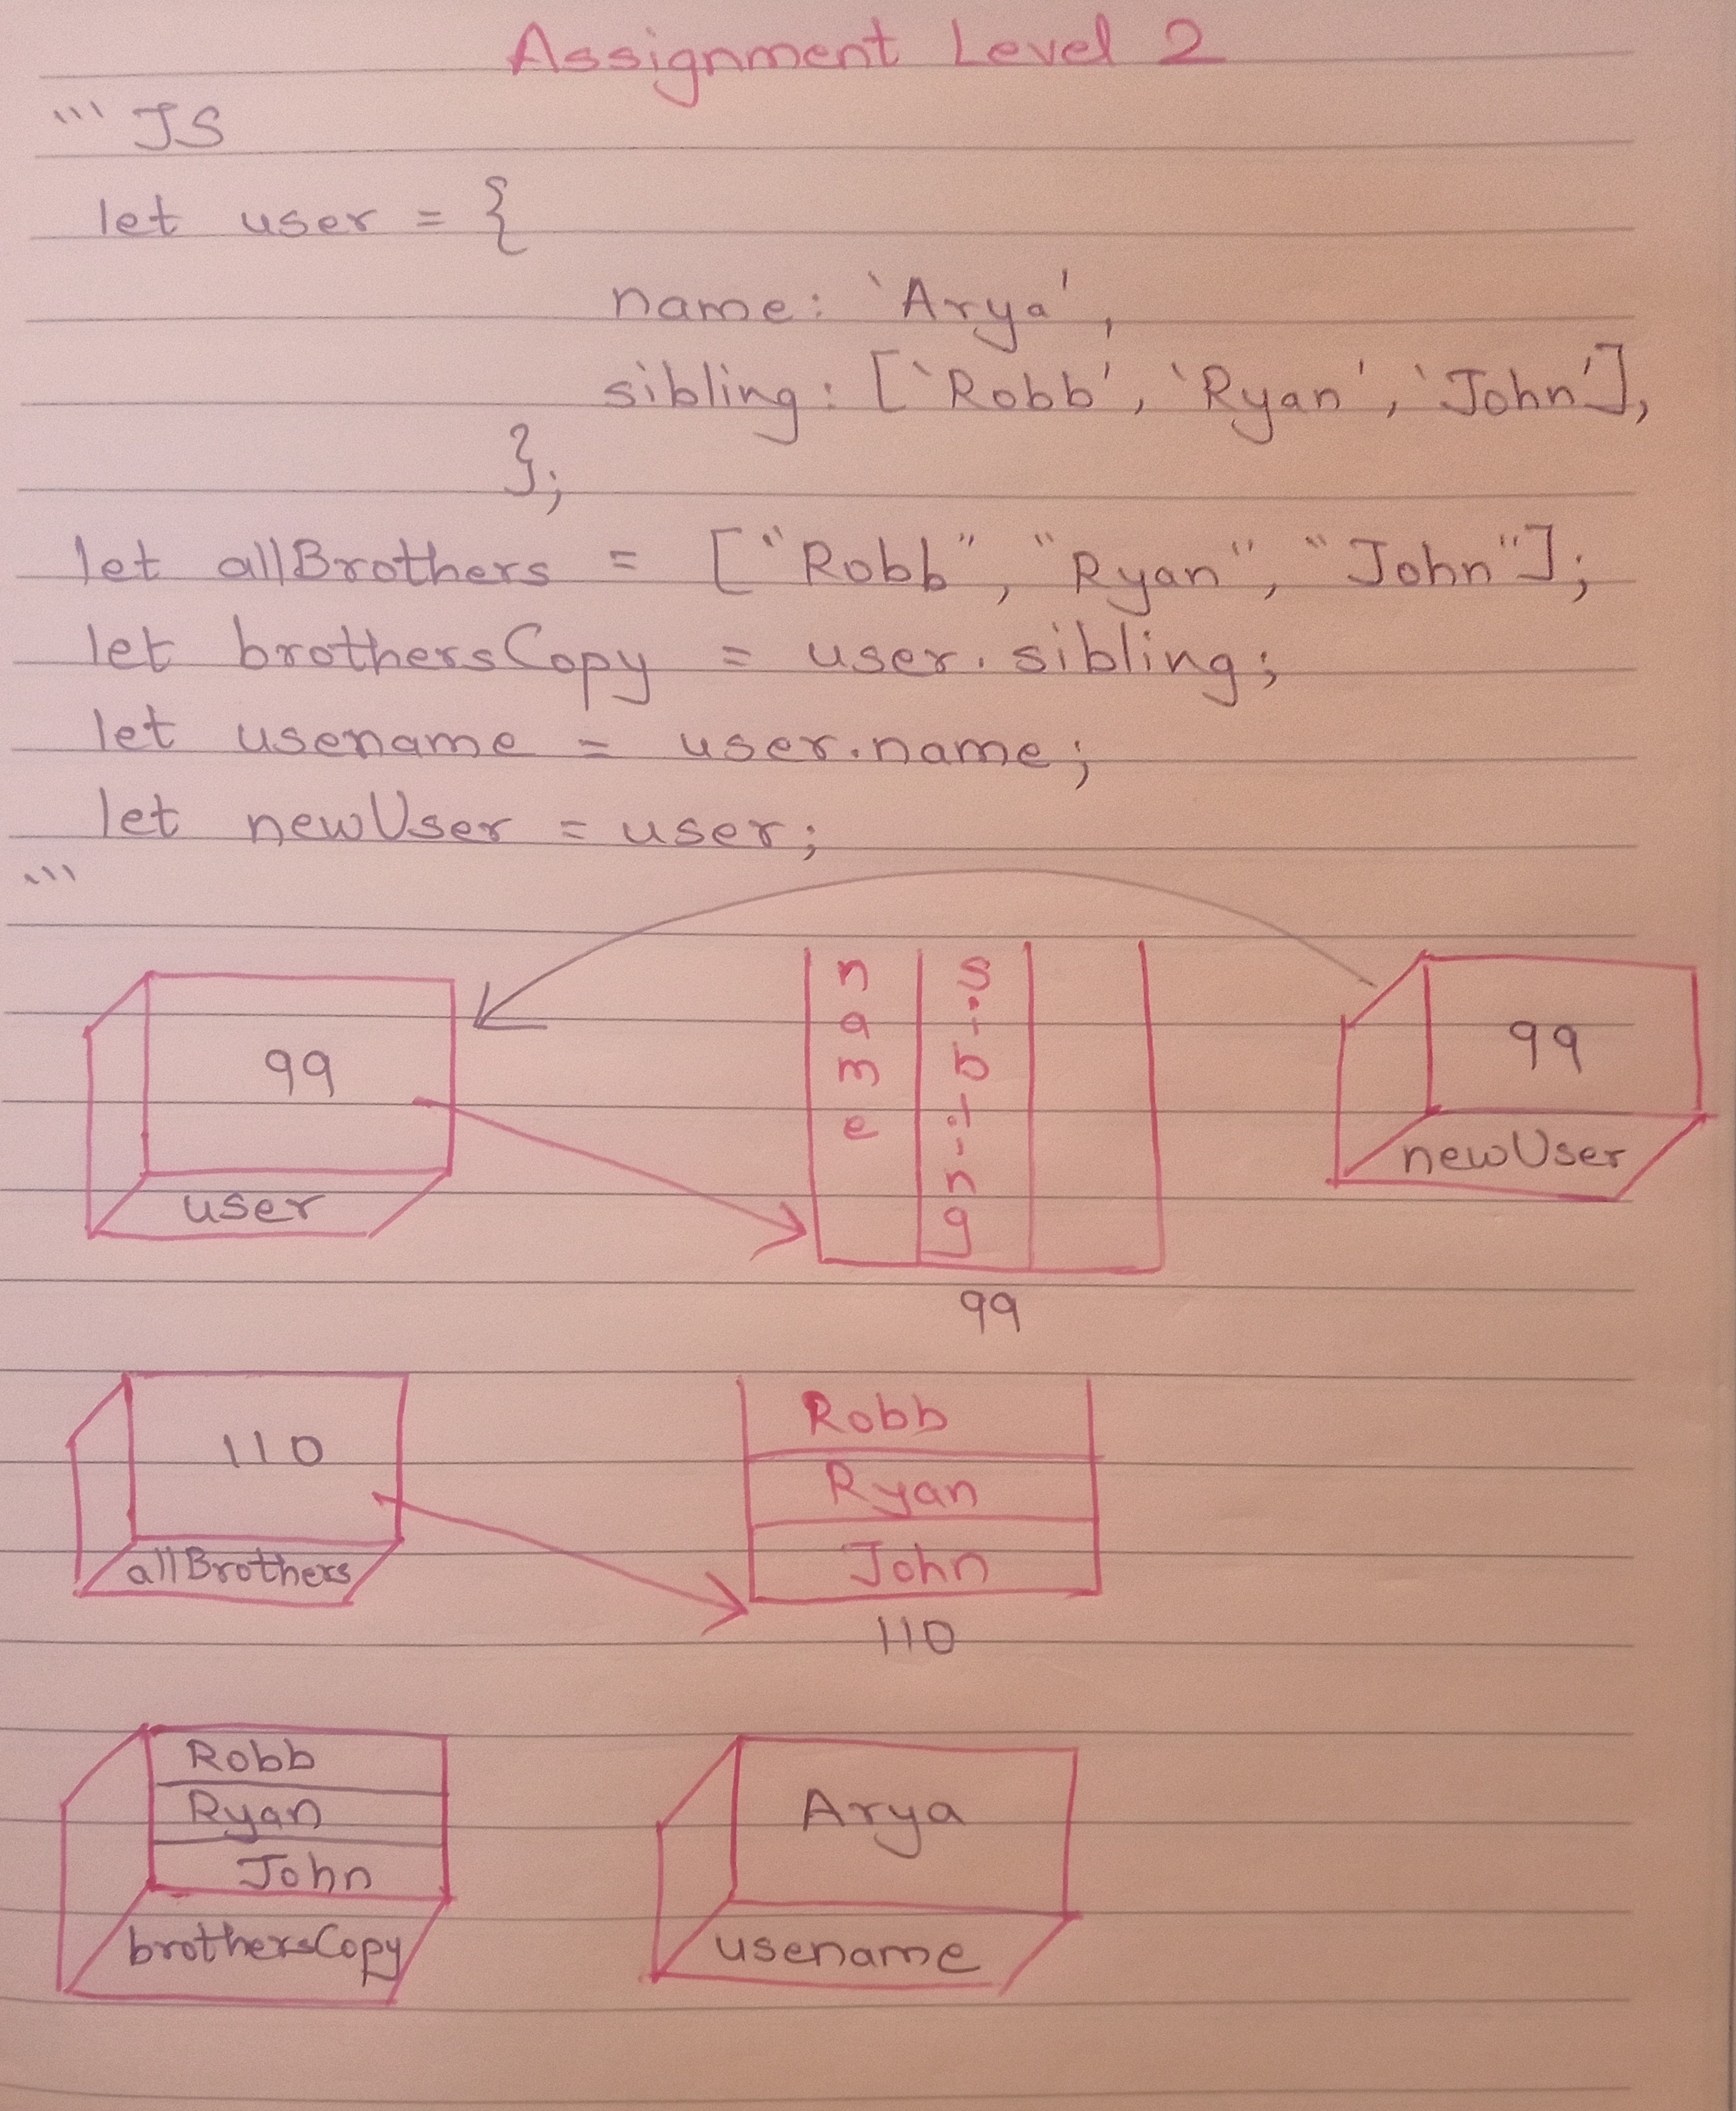 Assignment Level 2
``` JS
let user = {
name: 'Arya',
sibling: ['Robb', 'Ryan', 'John'],
};
let allBrothers = ["Robb", "Ryan", "John"];
let brothersCopy = user.sibling;
let usename = user.name;
let newUser = user;
```
99
user
name
sibling
99
99
newUser
110
allBrothers
Robb
Ryan
John
110
Robb
Ryan
John
brothersCopy
Arya
usename